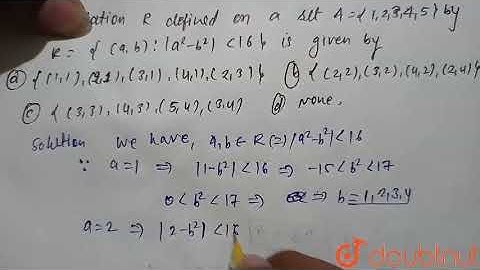 Relation R defined on a set A = {1,2,3,4,5} by
R = {(a,b) : |a²-b²| < 16} is given by
(a) {(1,1), (2,1), (3,1), (4,1), (2,3)} (b) {(2,2), (3,2), (4,2), (2,4)}
(c) {(3,3), (4,3), (5,4), (3,4)} (d) none.
Solution We have, a,b ∈ R (=) |a²-b²| < 16
∵ a=1 ⇒ |1-b²| < 16 ⇒ -15 < b² < 17
0 < b² < 17 ⇒ ⇒ b = 1,2,3,4
a=2 ⇒ |2-b²| < 16
doubtnut